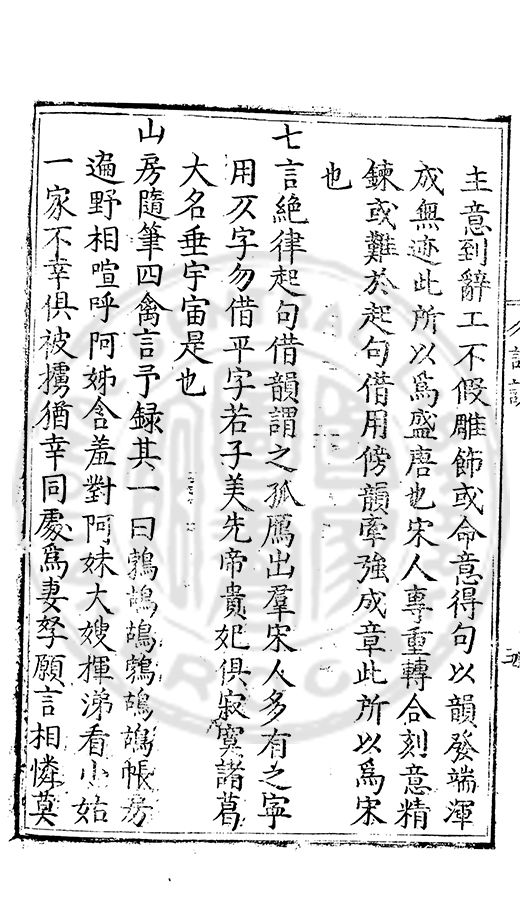 主意到辭工不假雕飾或命意得句以韻發端渾
成無迹此所以爲盛唐也宋人專重轉合刻意精
鍊或難於起句借用傍韻牽強成章此所以爲宋
也
七言絶律起句借韻謂之孤鴈出羣宋人多有之寧
用仄字勿借平字若子美先帝貴妃俱寂寞諸葛
大名垂宇宙是也
山房隨筆四禽言予録其一曰鵓鴣鴣鵓鴣鴣帳房
遍野相喧呼阿姊含羞對阿妹大嫂揮涕看小姑
一家不幸俱被擄猶幸同處爲妻孥願言相憐莫